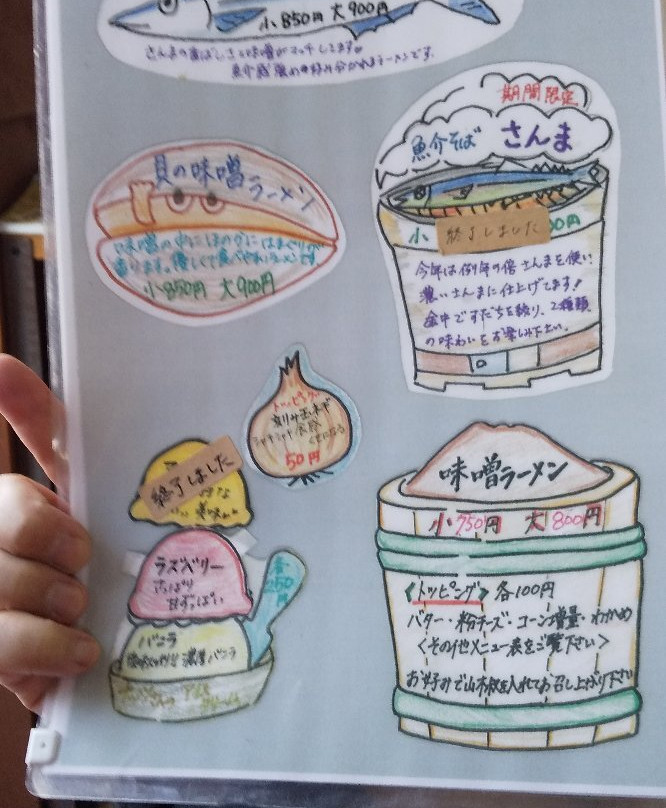 小850円 大900円
さんまの香ばしさと味噌がマッチしてます。
魚介感強め ラーメンです.
貝の味噌ラーメン
味噌の中にほのかにはまぐりが
香ります。優しくて食べやすいラーメンです。
小850円 大900円
期間限定
魚介そば さんま
小 終了しました 00円
今年は例年の倍さんまを使い
濃いさんまに仕上げてます!
途中ですだちを絞り、2種類
の味わいをお楽しみ下さい。
トッピング
刻み玉ネギ
シャキシャキ食感
くせになる
50円
終了しました
美味
ラズベリー
さっぱり
甘ずっぱい
各250円
バニラ
濃厚バニラ
アイス
味噌ラーメン
小750円 大800円
《トッピング》各100円
バター・粉チーズ・コーン増量・わかめ
〈その他メニュー表をご覧下さい〉
お好みで山椒を入れてお召し上がり下さい